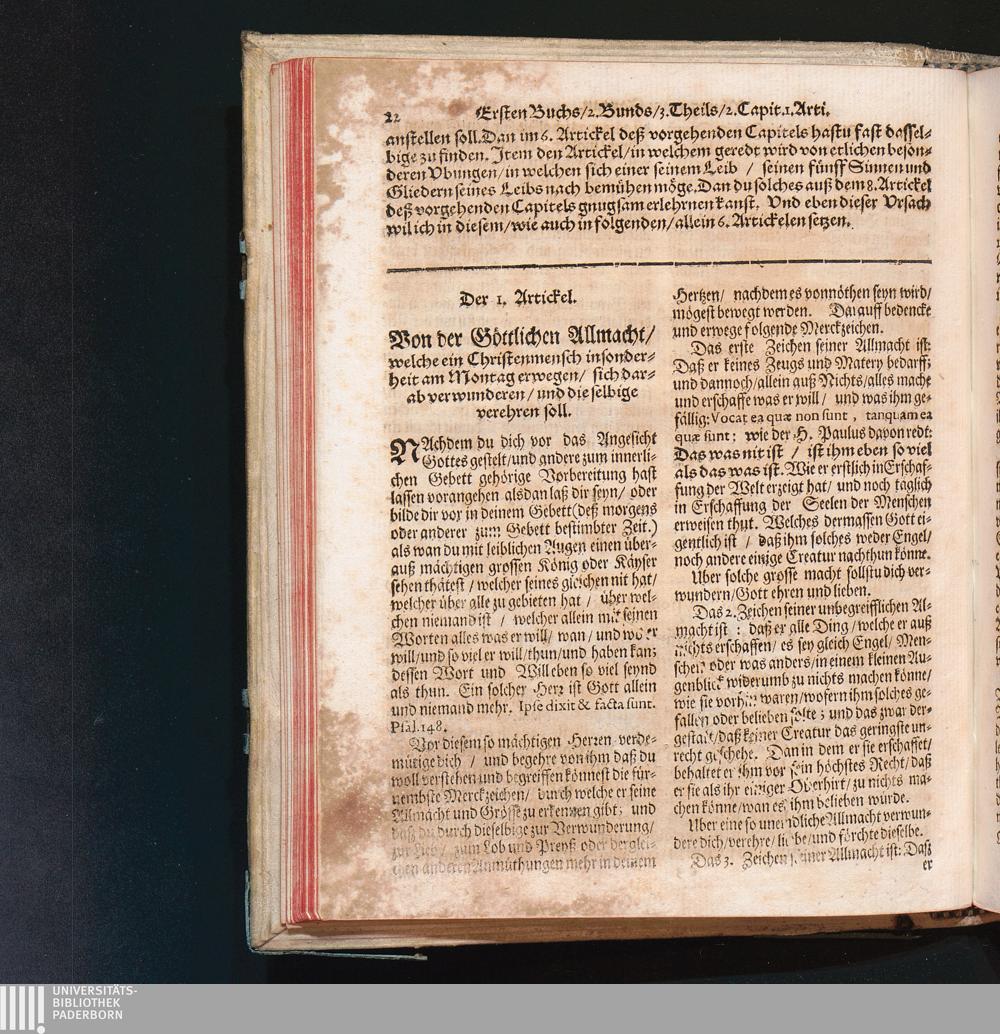 22
Ersten Buchs/2. Bunds/3. Theils/2. Capit. 1. Arti.
anstellen soll. Dan im 6. Artickel deß vorgehenden Capitels hastu fast dassel-
bige zu finden. Item den Artickel/in welchem geredt wird von etlichen beson-
deren Vbungen/in welchen sich einer seinem Leib / seinen fünff Sinnen und
Gliedern seines Leibs nach bemühen möge. Dan du solches auß dem 8. Artickel
deß vorgehenden Capitels gnugsam erlehrnen kanst. Vnd eben dieser Vrsach
wil ich in diesem/wie auch in folgenden/allein 6. Artickelen setzen.
Der 1. Artickel.
Von der Göttlichen Allmacht/
welche ein Christenmensch insonder-
heit am Montag erwegen/ sich dar-
ab verwunderen/und die selbige
verehren soll.
NAchdem du dich vor das Angesicht
Gottes gestelt/und andere zum innerli-
chen Gebett gehörige Vorbereitung hast
lassen vorangehen alsdan laß dir seyn/ oder
bilde dir vor in deinem Gebett (deß morgens
oder anderer zum Gebett bestimbter Zeit.)
als wan du mit leiblichen Augen einen über-
auß mächtigen grossen König oder Käyser
sehen thätest/welcher seines gleichen nit hat/
welcher über alle zu gebieten hat / über wel-
chen niemand ist / welcher allein mit seinen
Worten alles was er will/ wan/und wo er
will/und so viel er will/thun/und haben kan;
dessen Wort und Will eben so viel seynd
als thun. Ein solcher Herz ist Gott allein
und niemand mehr. Ipse dixit & facta sunt.
Psal. 148.
Vor diesem so mächtigen Herzen verde-
mütige dich / und begehre von ihm daß du
woll verstehen und begreiffen könnest die für-
nembste Merckzeichen/ durch welche er seine
Allmacht und Grösse zu erkennen gibt; und
daß du durch dieselbige zur Verwunderung/
zur Lieb/ zum Lob und Preyß oder derglei-
chen anderen Anmüthungen mehr in deinem
Hertzen/ nachdem es vonnöthen seyn wird/
mögest bewegt werden. Darauff bedencke
und erwege folgende Merckzeichen.
Das erste Zeichen seiner Allmacht ist:
Daß er keines Zeugs und Matery bedarff;
und dannoch/allein auß Nichts/alles mache
und erschaffe was er will/ und was ihm ge-
fällig: Vocat ea quæ non sunt, tanquam ea
quæ sunt: wie der H. Paulus davon redt:
Das was nit ist / ist ihm eben so viel
als das was ist. Wie er erstlich in Erschaf-
fung der Welt erzeigt hat/ und noch täglich
in Erschaffung der Seelen der Menschen
erweisen thut. Welches dermassen Gott ei-
gentlich ist / daß ihm solches weder Engel/
noch andere einzige Creatur nachthun könne.
Uber solche grosse macht sollstu dich ver-
wundern/Gott ehren und lieben.
Das 2. Zeichen seiner unbegreifflichen Al-
macht ist : daß er alle Ding/welche er auß
nichts erschaffen/ es sey gleich Engel/ Men-
schen oder was anders/in einem kleinen Au-
genblick widerumb zu nichts machen könne/
wie sie vorhin waren/wofern ihm solches ge-
fallen oder belieben solte; und das zwar der-
gestalt/daß keiner Creatur das geringste un-
recht geschehe. Dan in dem er sie erschaffet/
behaltet er ihm vor sein höchstes Recht/daß
er sie als ihr einziger Oberhirt/zu nichts ma-
chen könne/wan es ihm belieben würde.
Uber eine so unendliche Allmacht verwun-
dere dich/verehre/liebe/und förchte dieselbe.
Das 3. Zeichen seiner Allmacht ist: Daß
er
UNIVERSITÄTS-
BIBLIOTHEK
PADERBORN